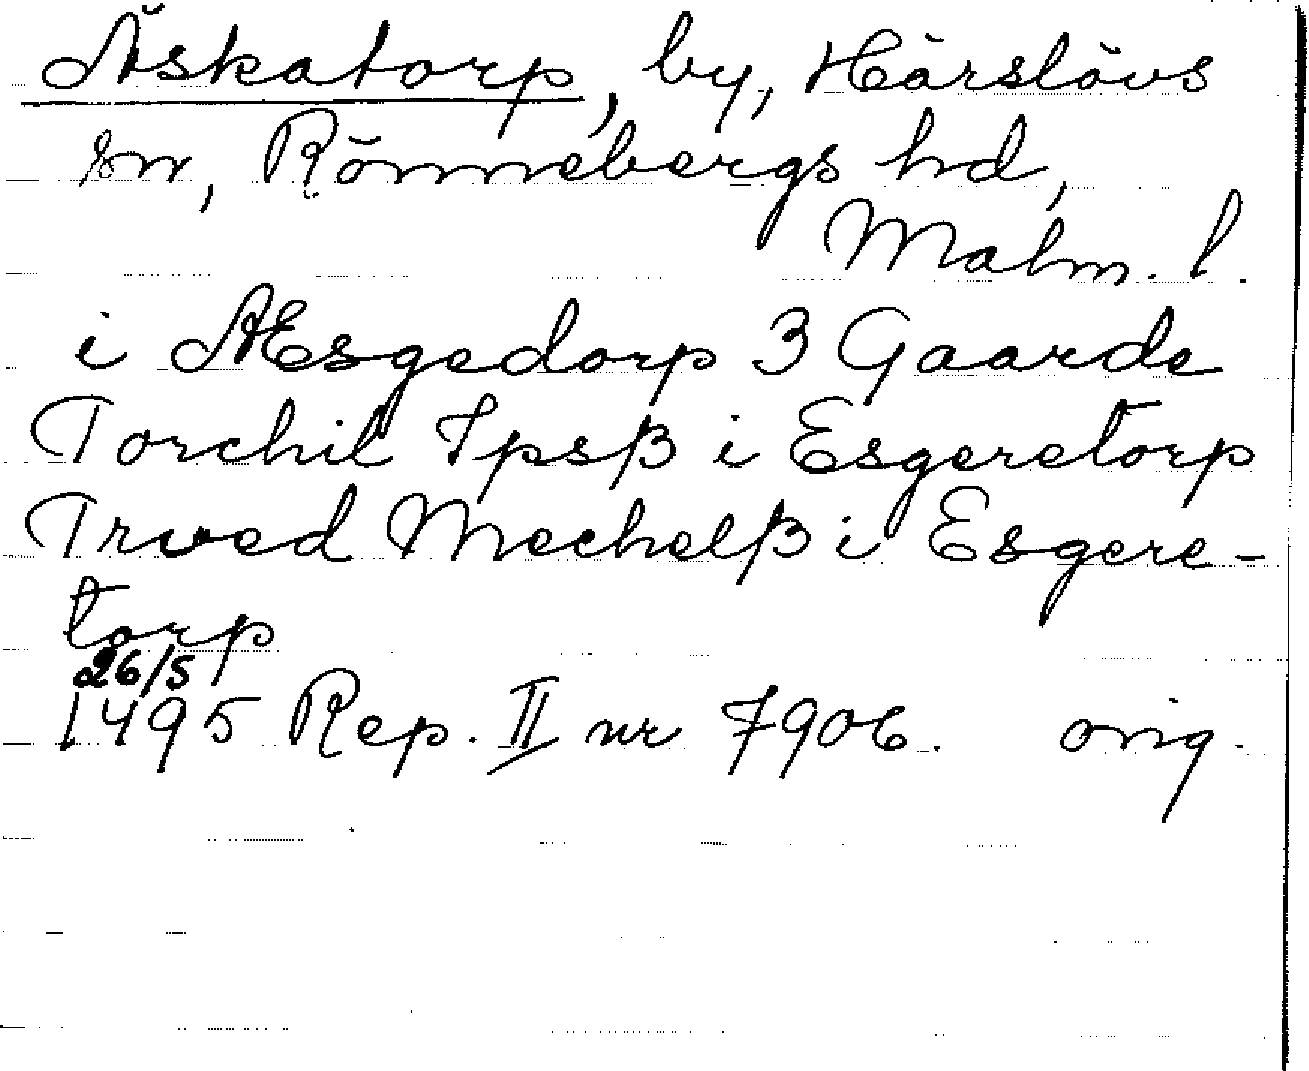 Äskatorp, by, Härslövs
sn, Rönnebergs hd,
Malm. l.
i Æsgedorp 3 Gaarde
Torchil Ipsß i Esgeretorp
Trued Mechelß i Esgere-
torp
26/5
1495 Rep. II nr 7906. orig.